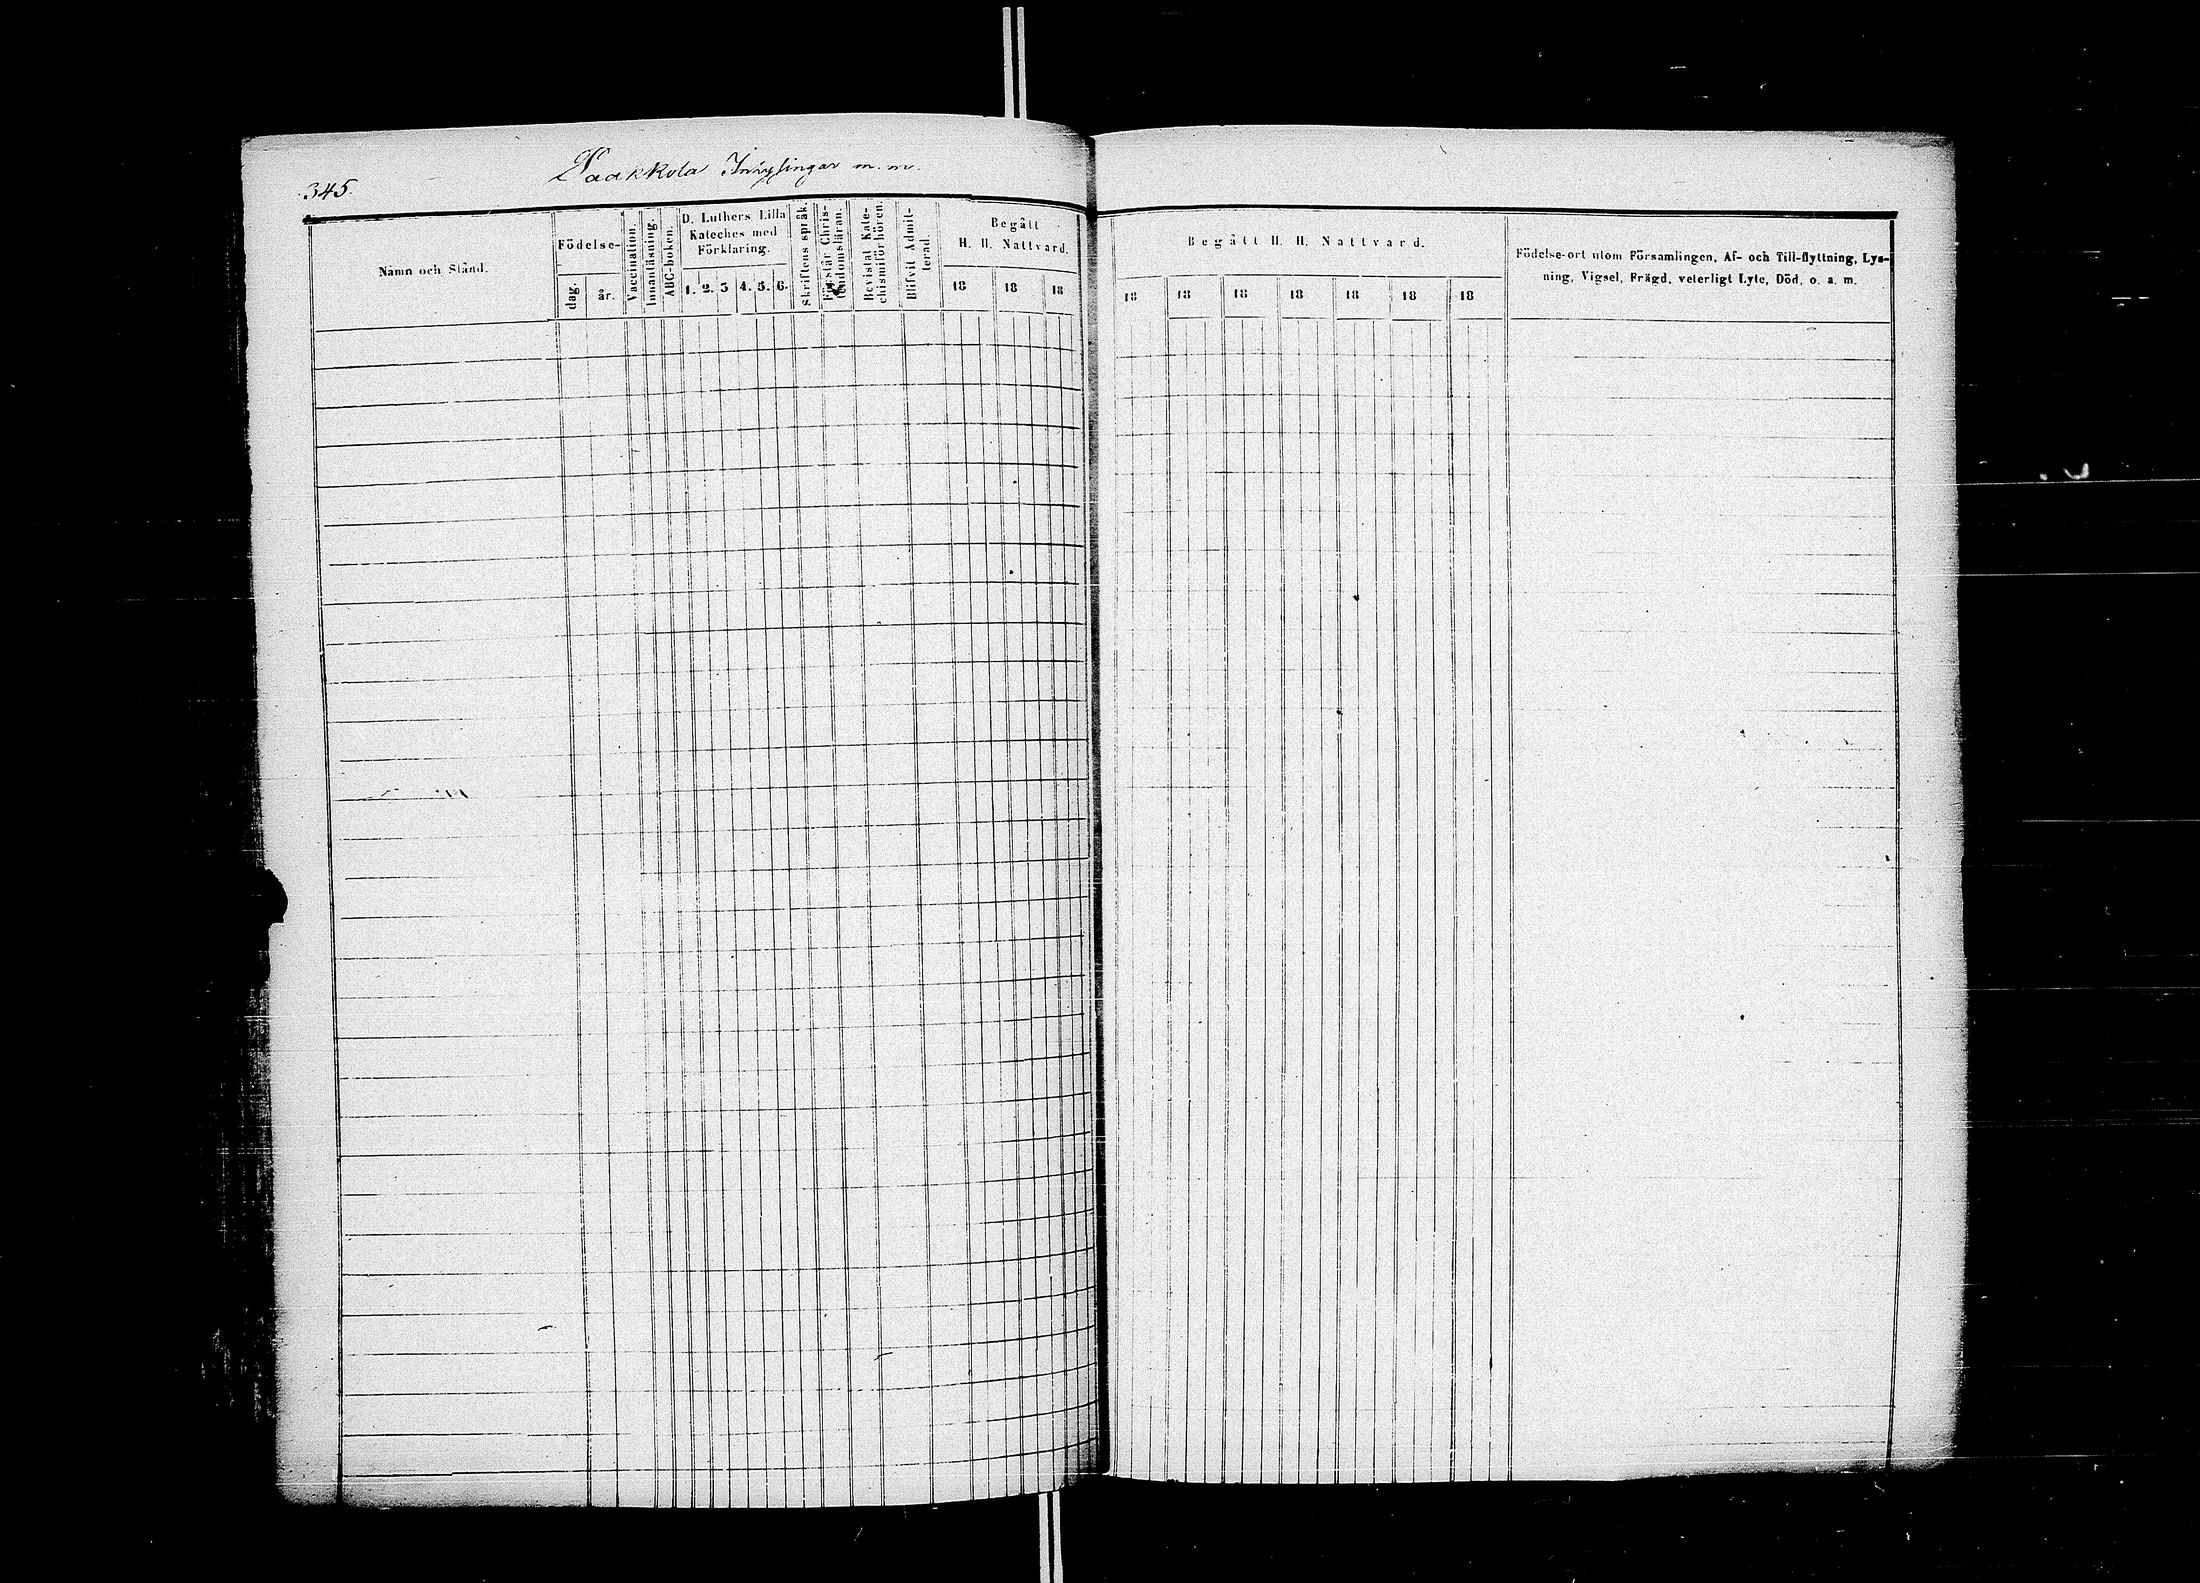 345.
Paakkola Inhysingar m.m.
Namn och Stånd.
Födelse-
dag.
år.
Vaccination.
Innanläsning.
ABC-boken.
D. Luthers Lilla
Kateches med
Förklaring.
1. 2. 3 4. 5. 6.
Skriftens språk.
Förstår Chris-
tendomsläran.
Bevistat Kate-
chismiförhören.
Blifvit Admit-
terad.
Begått
H. H. Nattvard.
18 18 18
Begått H. H. Nattvard.
18 18 18 18 18 18 18
Födelse-ort utom Församlingen, Af- och Till-flyttning, Lys-
ning, Vigsel, Frägd, veterligt Lyte, Död, o. a. m.